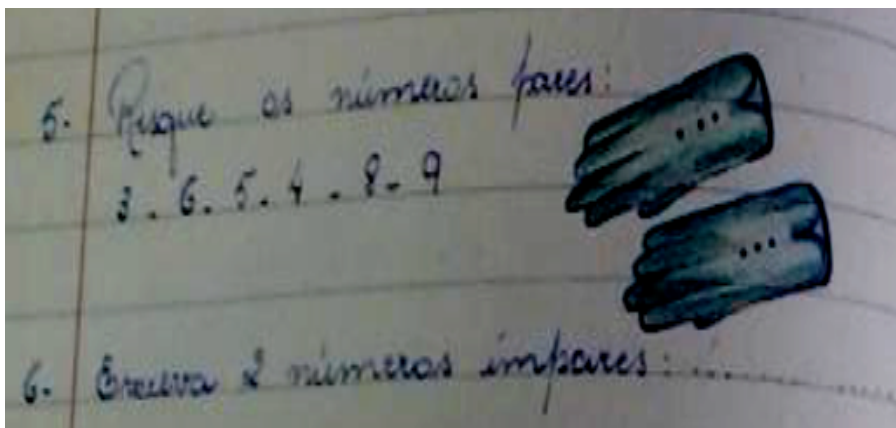 5. Risque os números pares:
3 - 6 - 5 - 4 - 8 - 9
6. Escreva 2 números ímpares: ...............